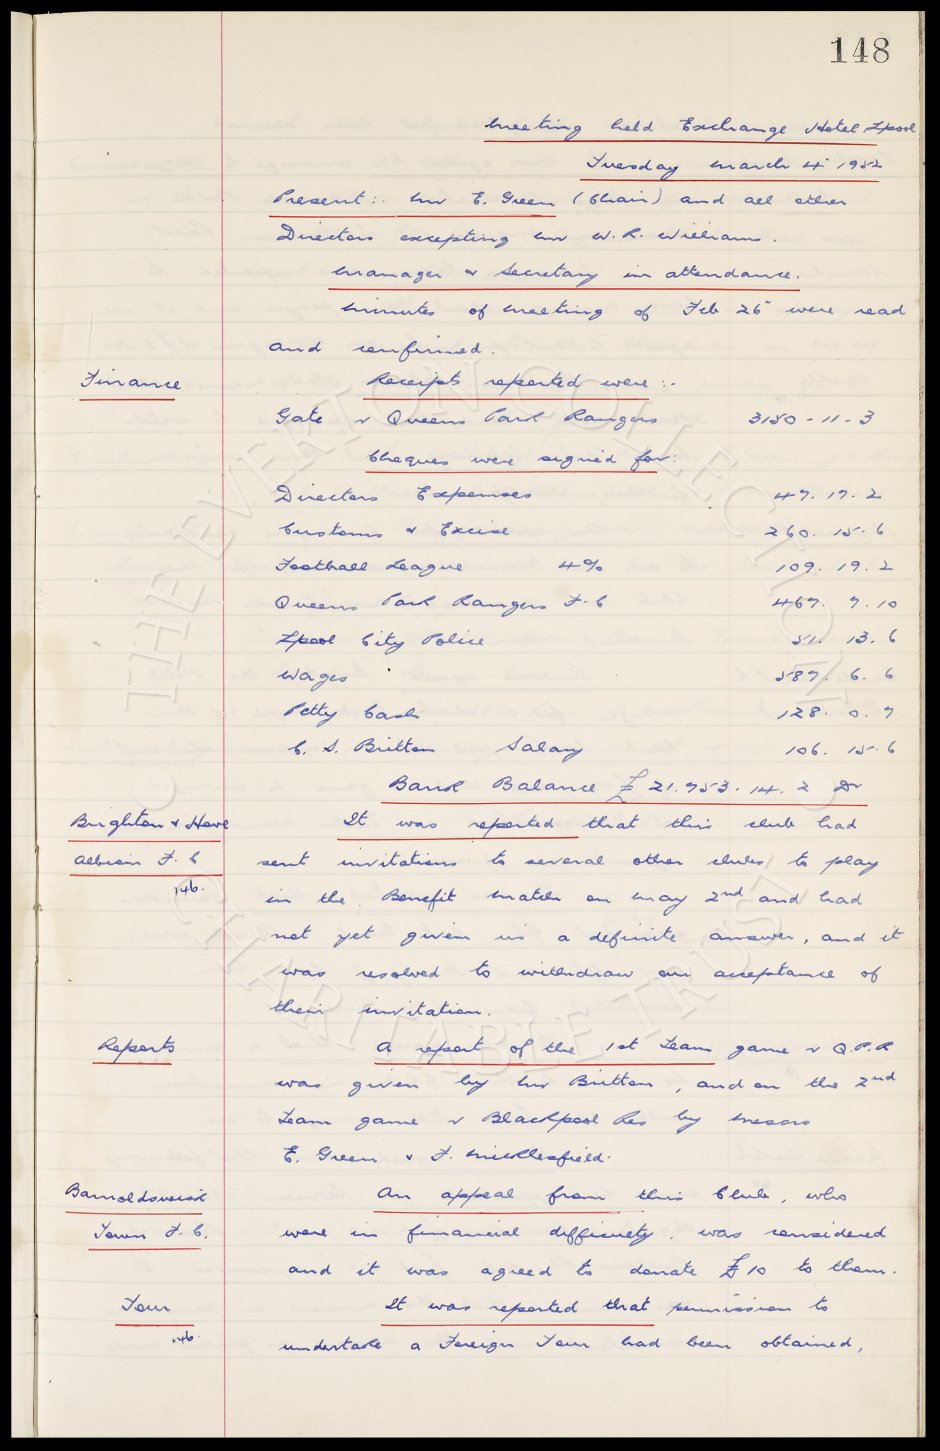 148
Meeting held Exchange Hotel Lpool
Tuesday March 4th 1952
Present:- Mr E. Green (Chair) and all other
Directors excepting Mr W. R. Williams.
Manager & Secretary in attendance.
Minutes of meeting of Feb 26th were read
and confirmed.
Finance Receipts reported were:-
Gate v Queens Park Rangers 3150-11-3
Cheques were signed for:
Directors Expenses 47. 17. 2
Customs & Excise 260. 15. 6
Football League 4% 109. 19. 2
Queens Park Rangers F.C 467. 7. 10
Lpool City Police 51. 13. 6
Wages 587. 6. 6
Petty Cash 128. 0. 7
C. S. Britton Salary 106. 15. 6
Bank Balance £21.753. 14. 2 Dr
Brighton & Hove It was reported that this club had
Albion F.C sent invitations to several other clubs to play
146. in the Benefit match on May 2nd and had
not yet given us a definite answer, and it
was resolved to withdraw our acceptance of
their invitation.
Reports A report of the 1st Team game v Q.P.R
was given by Mr Britton, and on the 2nd
Team game v Blackpool Res by Messrs
E. Green & F. Micklesfield.
Barnoldswick An appeal from this Club, who
Town F.C. were in financial difficulty, was considered
and it was agreed to donate £10 to them.
Tour It was reported that permission to
146. undertake a Foreign Tour had been obtained,
© THE EVERTON COLLECTION
CHARITABLE TRUST